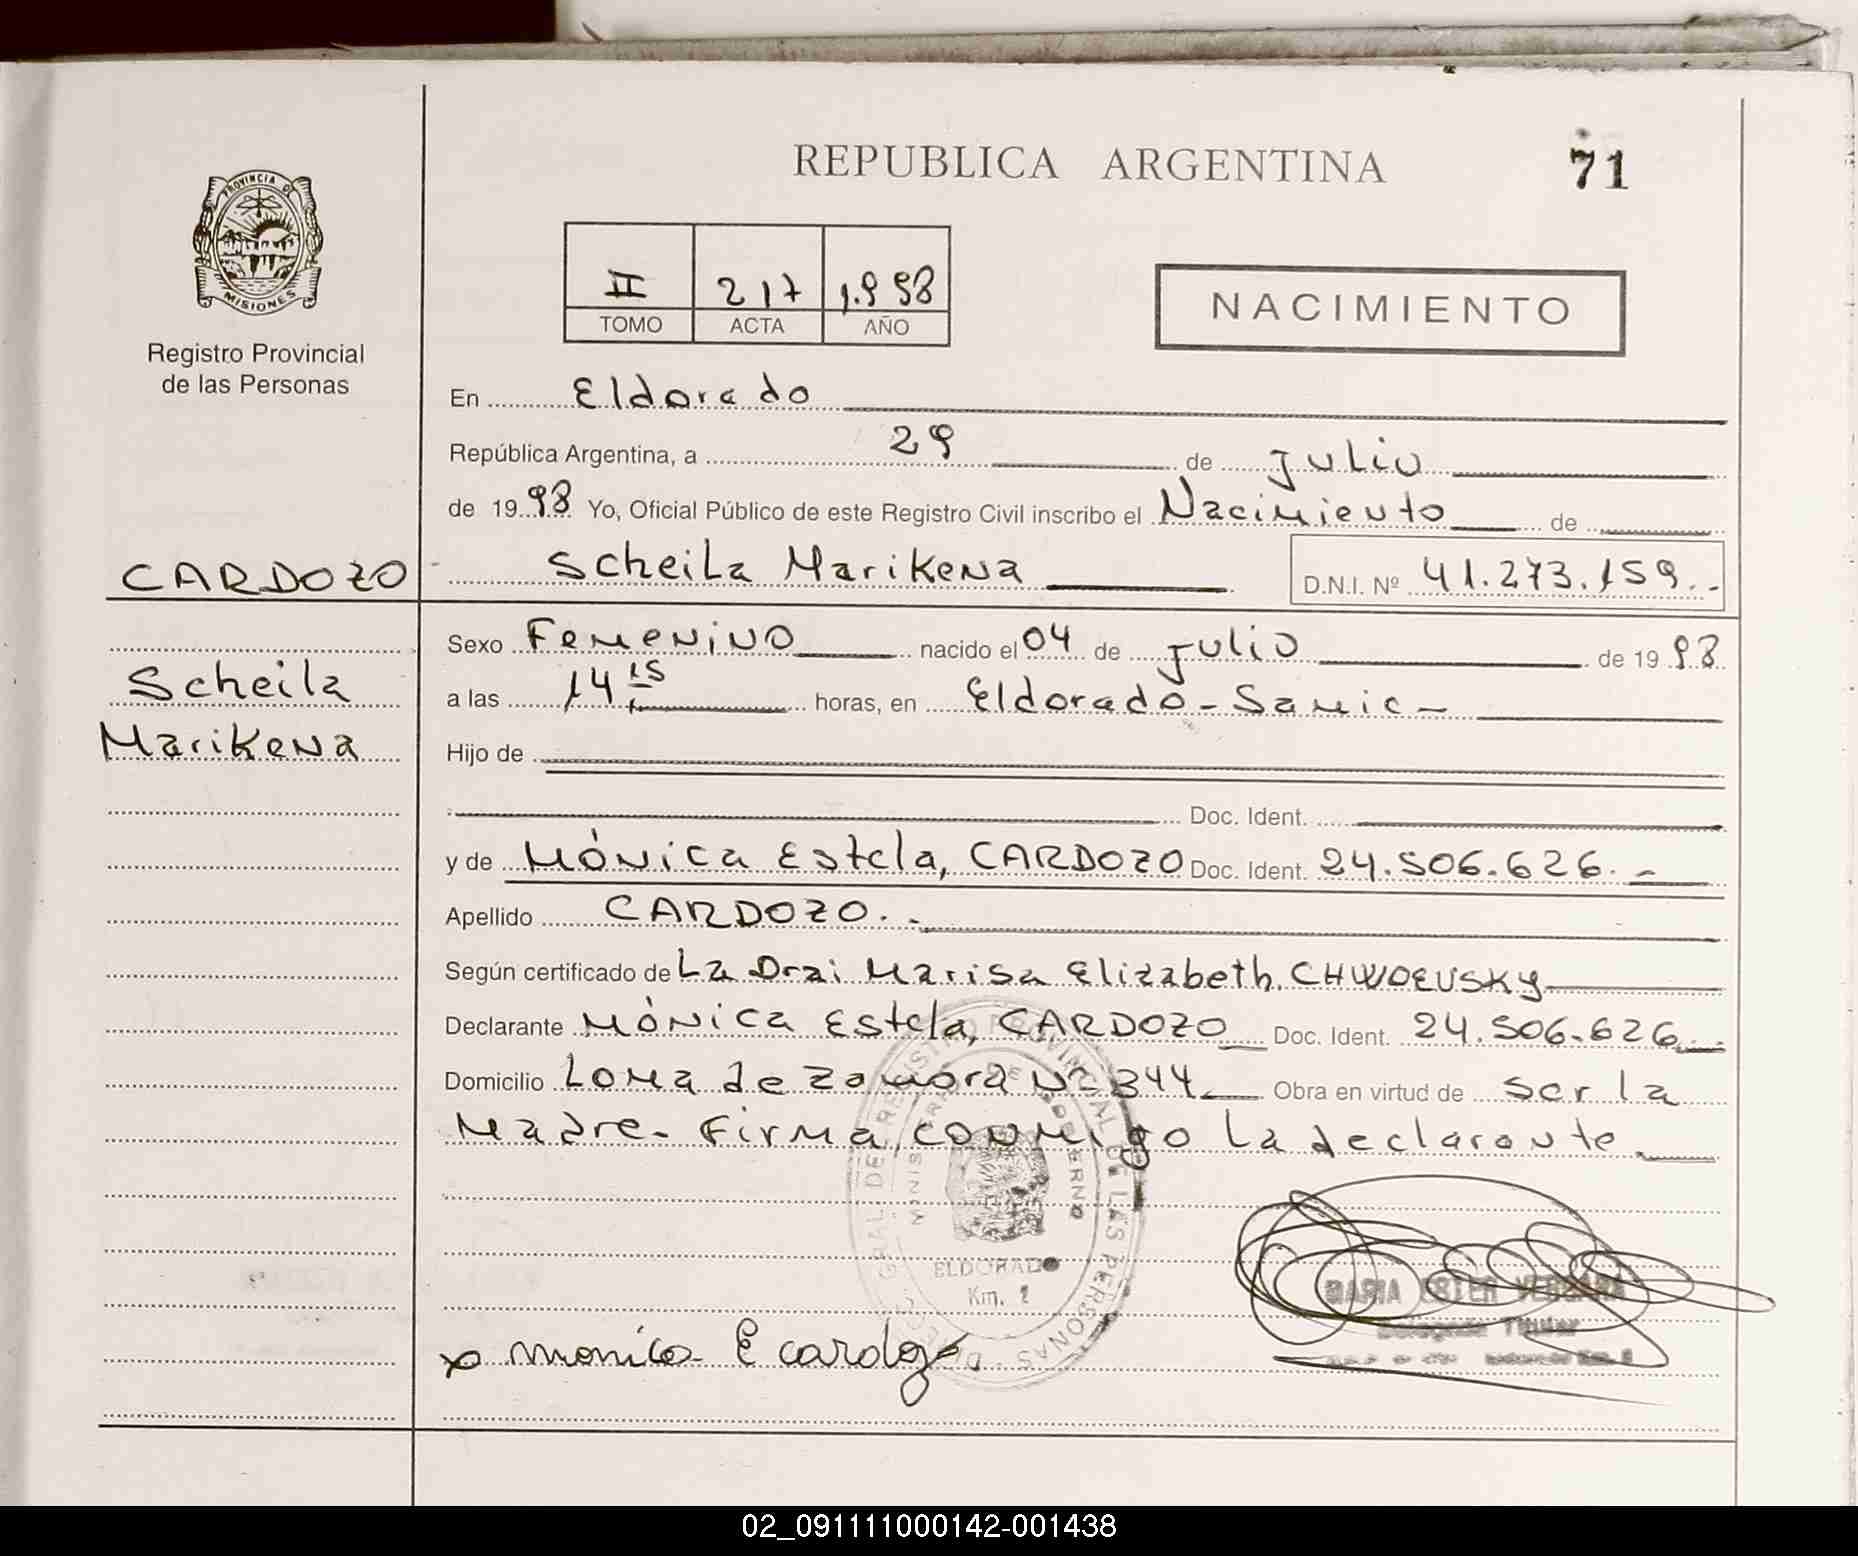 REPUBLICA ARGENTINA
71
PROVINCIA DE
MISIONES
Registro Provincial
de las Personas
II 217 1.998
TOMO ACTA AÑO
NACIMIENTO
En Eldorado
República Argentina, a 29 de Julio
de 1998 Yo, Oficial Público de este Registro Civil inscribo el Nacimiento de
CARDOZO Scheila Marikena D.N.I. Nº 41.273.159.-
Sexo Femenino nacido el 04 de Julio de 1998
Scheila
a las 14 15 horas, en Eldorado - Samic -
Marikena
Hijo de
Doc. Ident.
y de Mónica Estela, CARDOZO Doc. Ident. 24.506.626.-
Apellido CARDOZO.-
Según certificado de La Dra: Marisa Elizabeth CHWOEUSKY
Declarante Mónica Estela, CARDOZO Doc. Ident. 24.506.626
Domicilio Loma de Zamora Nº 344 Obra en virtud de ser la
Madre- Firma conmigo la declarante
DIREC. GRAL. DEL REGISTRO PROVINCIAL DE LAS PERSONAS
MINIST. DE GOBIERNO
ELDORADO
Km. 2
VERGARA
Delegada Titular
x monica E cardozo
02_091111000142-001438